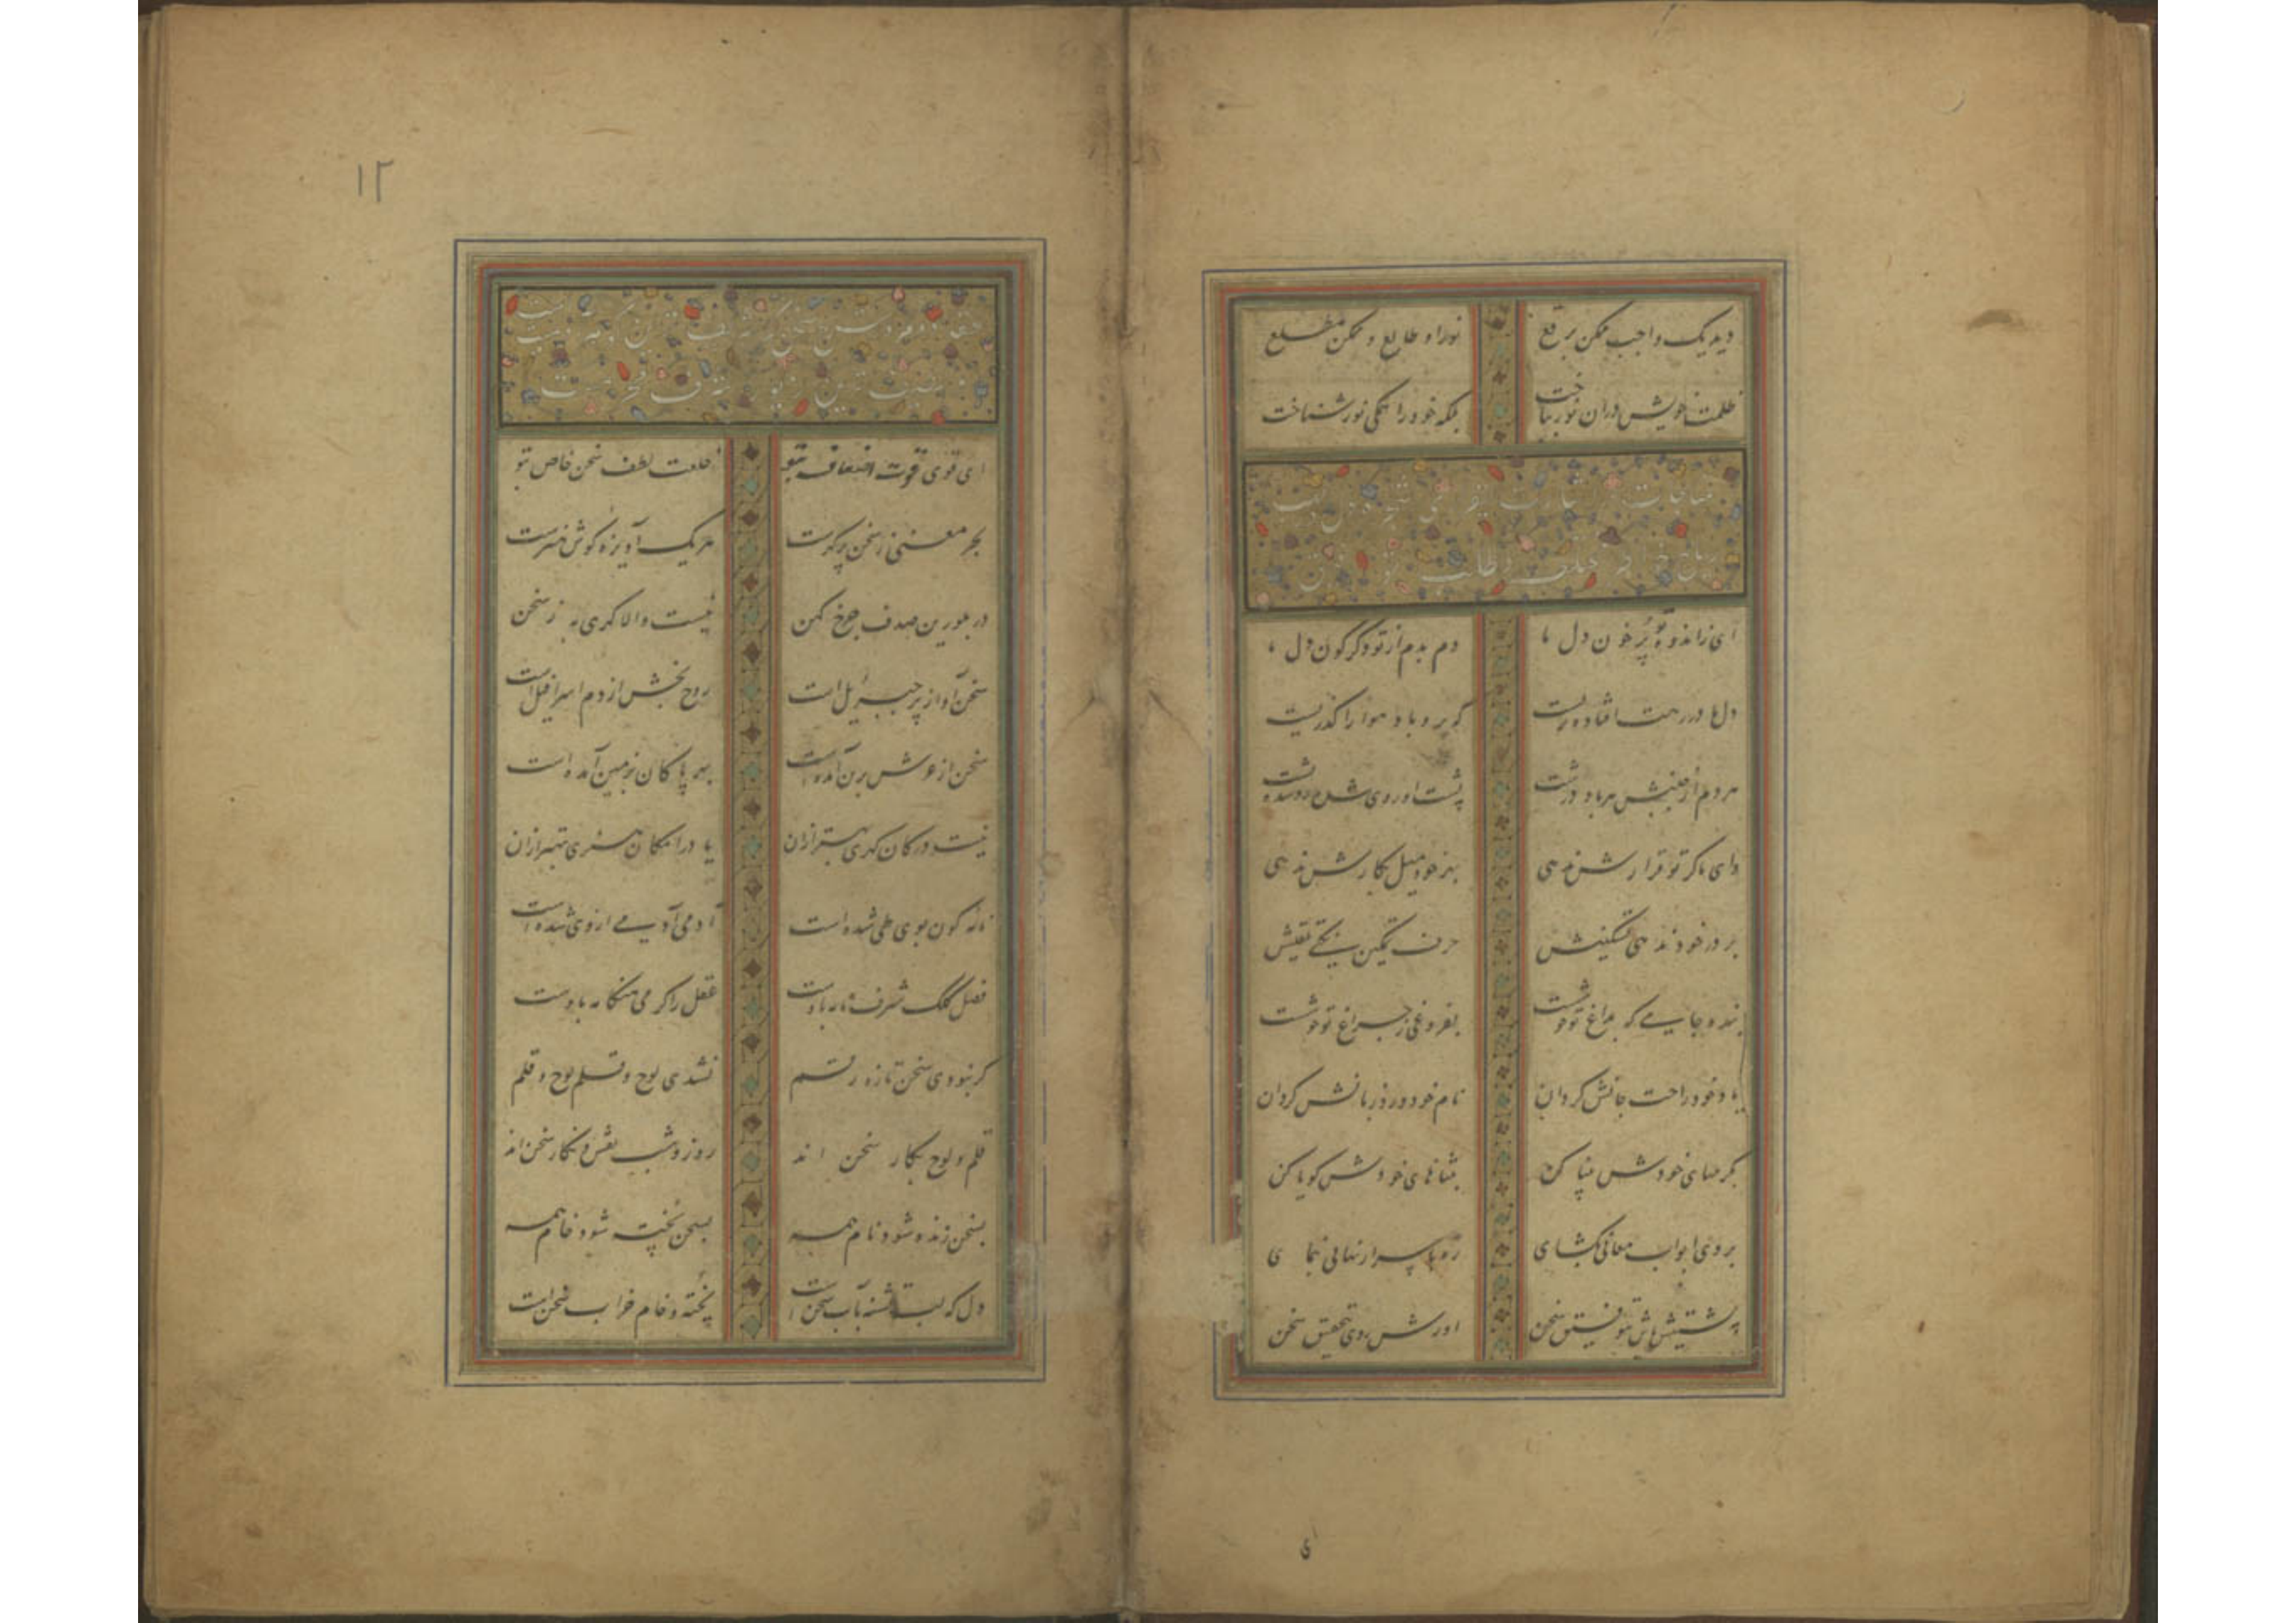 دید یک واجب ممکن برقع نور او طالع و ممکن مطلع
ظلمت خویش در آن نور بباخت بلکه خود را همگی نور شناخت
مناجات در
ای ز اندوه تو پر خون دل ما دم بدم از تو دگرگون دل ما
دل ما در رهت افتاده پریست که برو باد هوا را گذریست
هر دم از جنبش هر باد درشت پشت او روی شد روشده پشت
وای ما گر تو قرارش ندهی بهر خود میل بکارش ندهی
بر در خود ندهی تسکینش حرف تمکین نکنی تلقینش
بنده جامی که بداغ تو خوشست بفروغی ز چراغ تو خوشست
یاد خود راحت جانش گردان نام خود ورد زبانش گردان
بکرمهای خودش بینا کن بثناهای خودش گویا کن
بر وی ابواب معانی بگشای ره باسرار نهانی بنمای
پشتیش باش بتوفیق سخن اورش روی بتحقیق سخن
ی
۱۲
عقد دوم در
ای قوی قوت انصاف بتو خلعت لطف سخن خاص بتو
بحر معنی ز سخن پر گهرست هر یک آویزه گوش هنرست
در بلورین صدف چرخ کهن نیست والا گهری به ز سخن
سخن آواز پر جبریل است روح بخش از دم اسرافیل است
سخن از عرش برین آمده است بهر پاکان بزمین آمده است
نیست در کان گهری بهتر ازان یا در امکان هنری مهتر ازان
نامه کون بوی طی شده است آدمی آدمی از وی شده است
فضل کلک شرف نامه بدوست عقل را گرمی هنگامه بدوست
گر نبودی سخن تازه رقم نشدی لوح و قلم لوح و قلم
قلم و لوح بکار سخن اند روز و شب نقش و نگار سخن اند
بسخن زنده شود نام همه بسخن پخته شود خام همه
دل که لب تشنه آب سخن است پخته و خام خراب سخن است